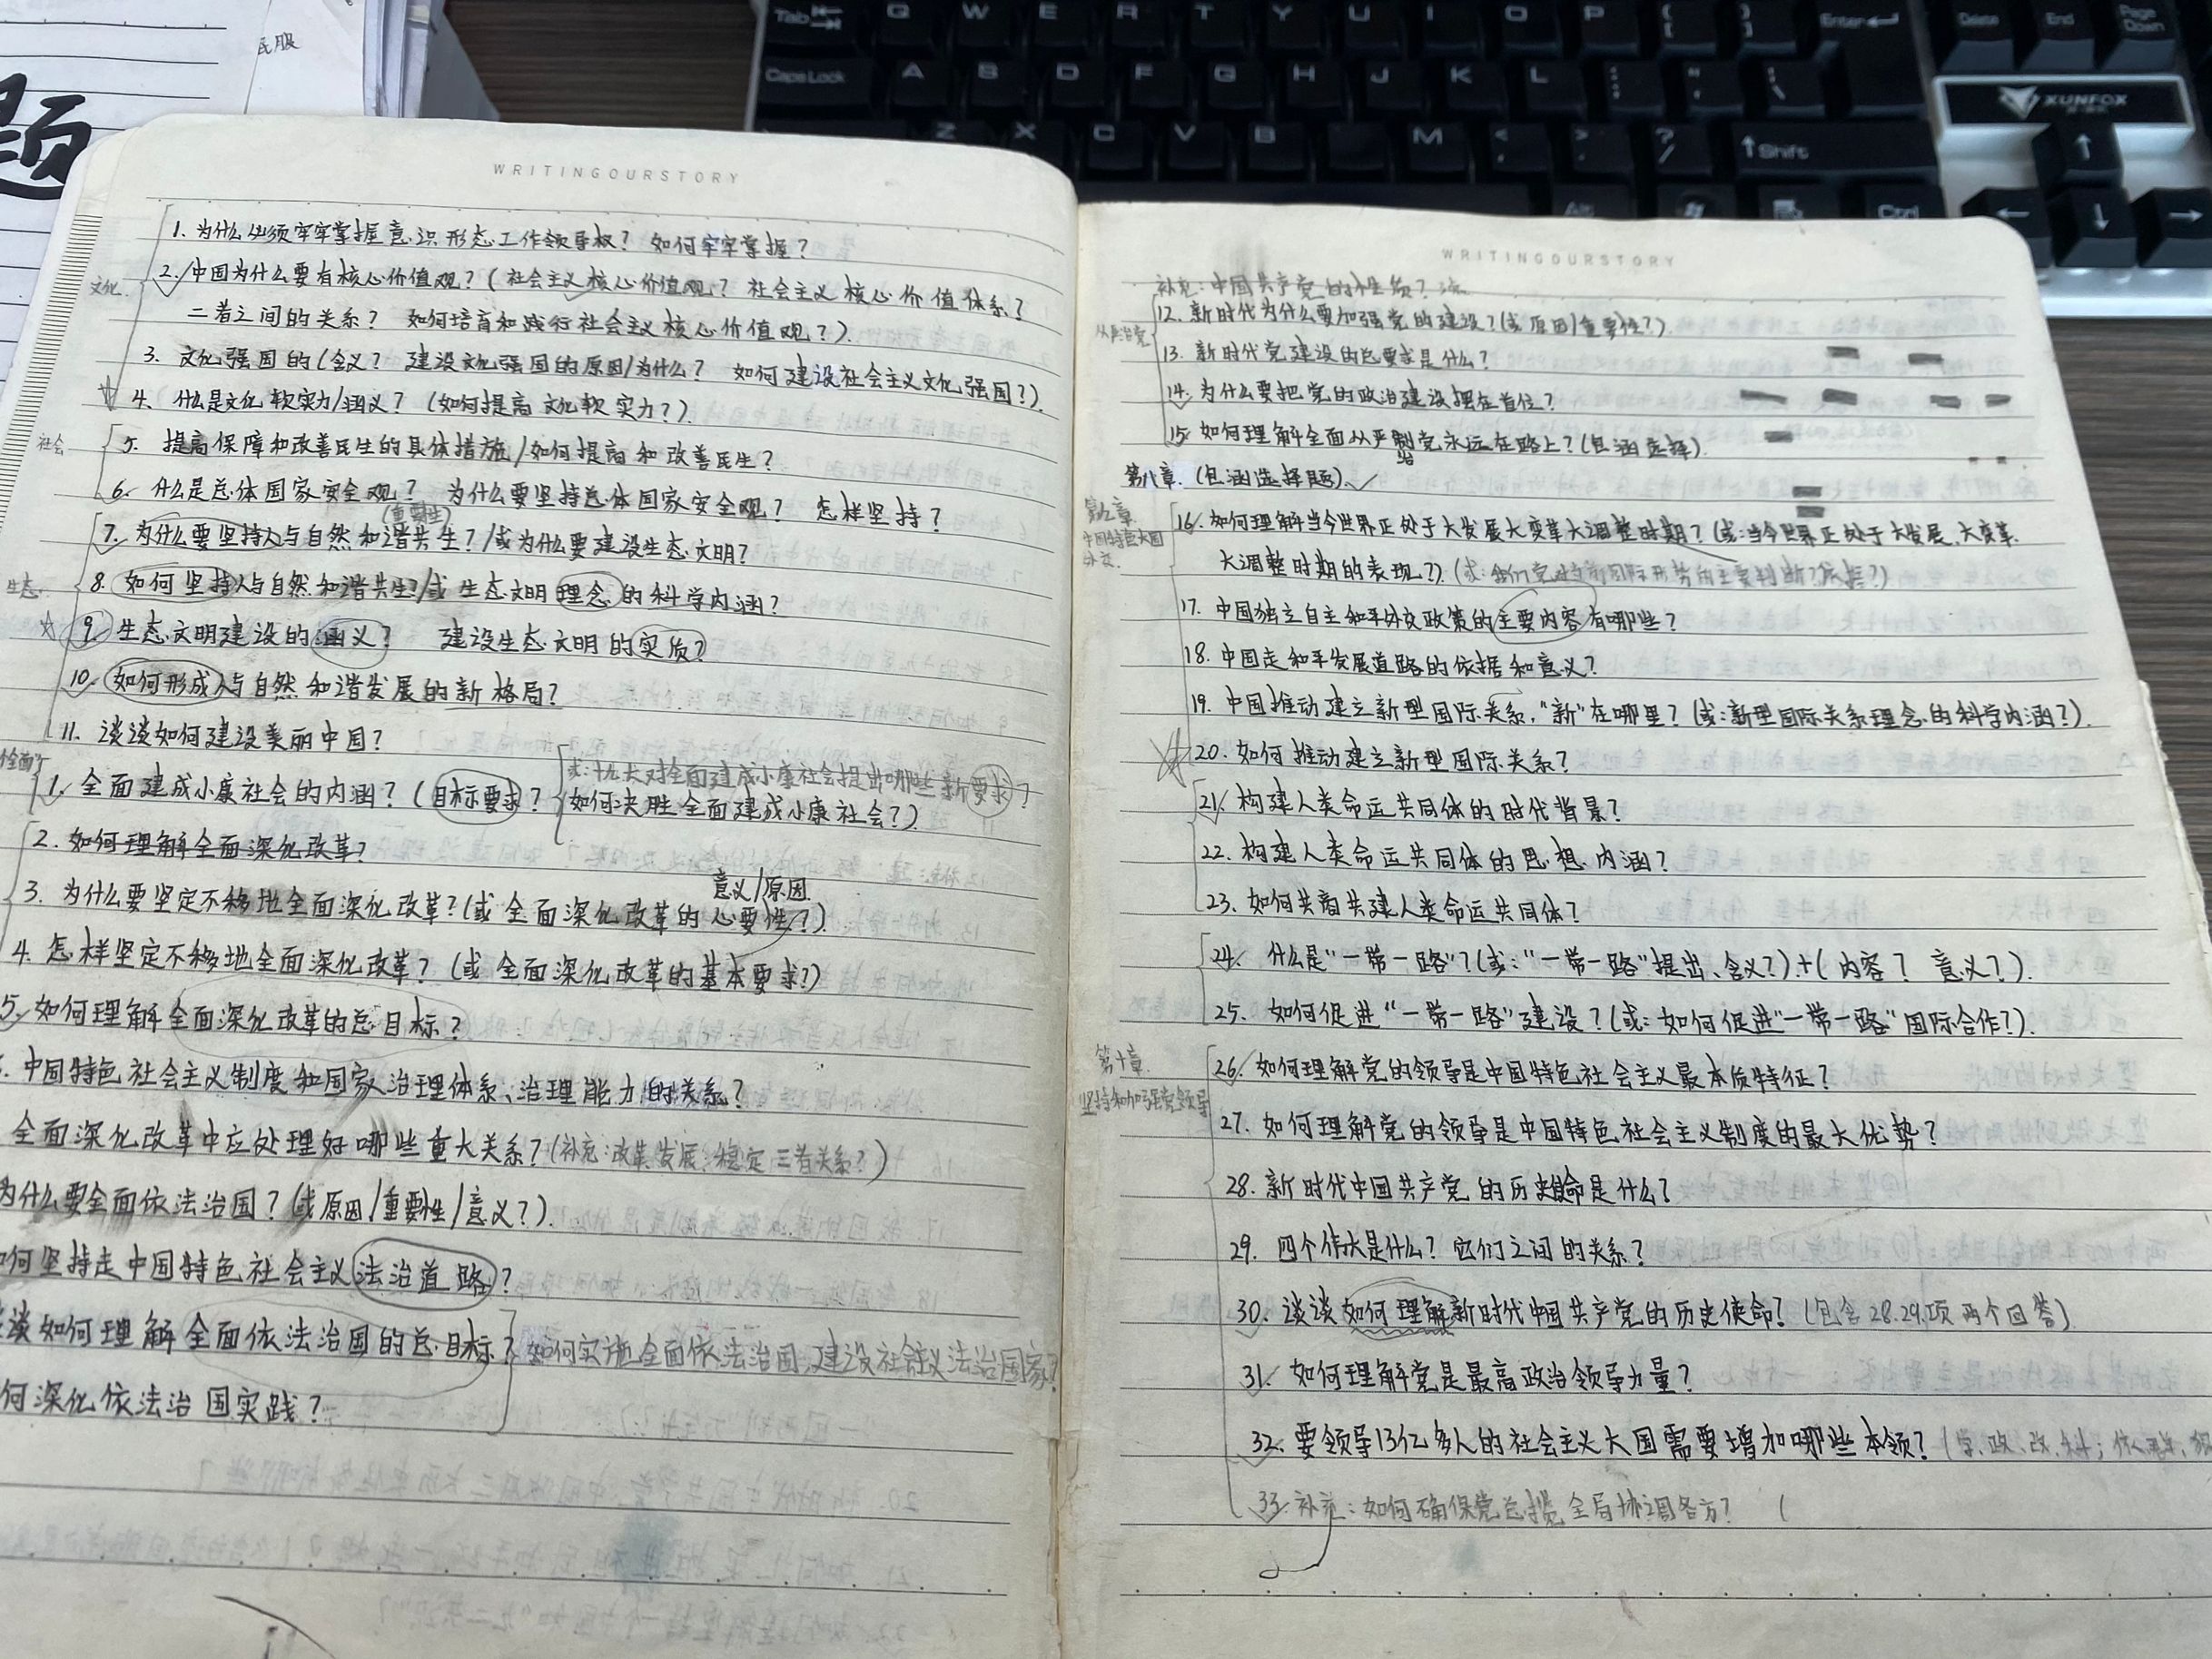 民服
题
WRITINGOURSTORY
1. 为什么必须牢牢掌握意识形态工作领导权？ 如何牢牢掌握？
文化
2. 中国为什么要有核心价值观？（社会主义核心价值观？ 社会主义核心价值体系？
二者之间的关系？ 如何培育和践行社会主义核心价值观？）
3. 文化强国的（含义？ 建设文化强国的原因/为什么？ 如何建设社会主义文化强国？）
4. 什么是文化软实力/涵义？（如何提高文化软实力？）
社会
5. 提高保障和改善民生的具体措施/如何提高和改善民生？
6. 什么是总体国家安全观？ 为什么要坚持总体国家安全观？ 怎样坚持？
（重要性）
7. 为什么要坚持人与自然和谐共生？/或为什么要建设生态文明？
生态
8. 如何坚持人与自然和谐共生？/或 生态文明理念的科学内涵？
9. 生态文明建设的涵义？ 建设生态文明的实质？
10. 如何形成人与自然和谐发展的新格局？
11. 谈谈如何建设美丽中国？
个全面
或：十九大对全面建成小康社会提出哪些新要求？
1. 全面建成小康社会的内涵？（目标要求？ 如何决胜全面建成小康社会？）
2. 如何理解全面深化改革？
意义/原因
3. 为什么要坚定不移地全面深化改革？（或全面深化改革的必要性？）
4. 怎样坚定不移地全面深化改革？（或全面深化改革的基本要求？）
5. 如何理解全面深化改革的总目标？
. 中国特色社会主义制度和国家治理体系、治理能力的关系？
全面深化改革中应处理好哪些重大关系？（补充：改革、发展、稳定三者关系？）
为什么要全面依法治国？（或原因/重要性/意义？）
如何坚持走中国特色社会主义法治道路？
谈如何理解全面依法治国的总目标？如何实施全面依法治国，建设社会主义法治国家？
何深化依法治国实践？
WRITINGOURSTORY
补充：中国共产党的性质？
从严治党
12. 新时代为什么要加强党的建设？（或原因/重要性？）
13. 新时代党建设的总要求是什么？
14. 为什么要把党的政治建设摆在首位？
15. 如何理解全面从严治党永远在路上？（包涵选择）
第八章.（包涵选择题）
第九章
中国特色大国
外交
16. 如何理解当今世界正处于大发展大变革大调整时期？（或：当今世界正处于大发展、大变革、
大调整时期的表现？）（或：我们党对当前国际形势的主要判断？依据？）
17. 中国独立自主和平外交政策的主要内容有哪些？
18. 中国走和平发展道路的依据和意义？
19. 中国推动建立新型国际关系，“新”在哪里？（或：新型国际关系理念的科学内涵？）
20. 如何推动建立新型国际关系？
21. 构建人类命运共同体的时代背景？
22. 构建人类命运共同体的思想内涵？
23. 如何共商共建人类命运共同体？
24. 什么是“一带一路”？（或：“一带一路”提出、含义？）+（内容？ 意义？）
25. 如何促进“一带一路”建设？（或：如何促进“一带一路”国际合作？）
第十章
坚持和加强党领导
26. 如何理解党的领导是中国特色社会主义最本质特征？
27. 如何理解党的领导是中国特色社会主义制度的最大优势？
28. 新时代中国共产党的历史使命是什么？
29. 四个伟大是什么？ 它们之间的关系？
30. 谈谈如何理解新时代中国共产党的历史使命？（包含28.29.项两个回答）
31. 如何理解党是最高政治领导力量？
32. 要领导13亿多人的社会主义大国需要增加哪些本领？（学、政、改、科；依、群、
33. 补充：如何确保党总揽全局协调各方？（
Tab Q W E R T Y U I O P Enter Delete End Page Down
Caps Lock A S D F G H J K L
XUNFOX
Z X C V B M < > ? / Shift
Alt Ctrl